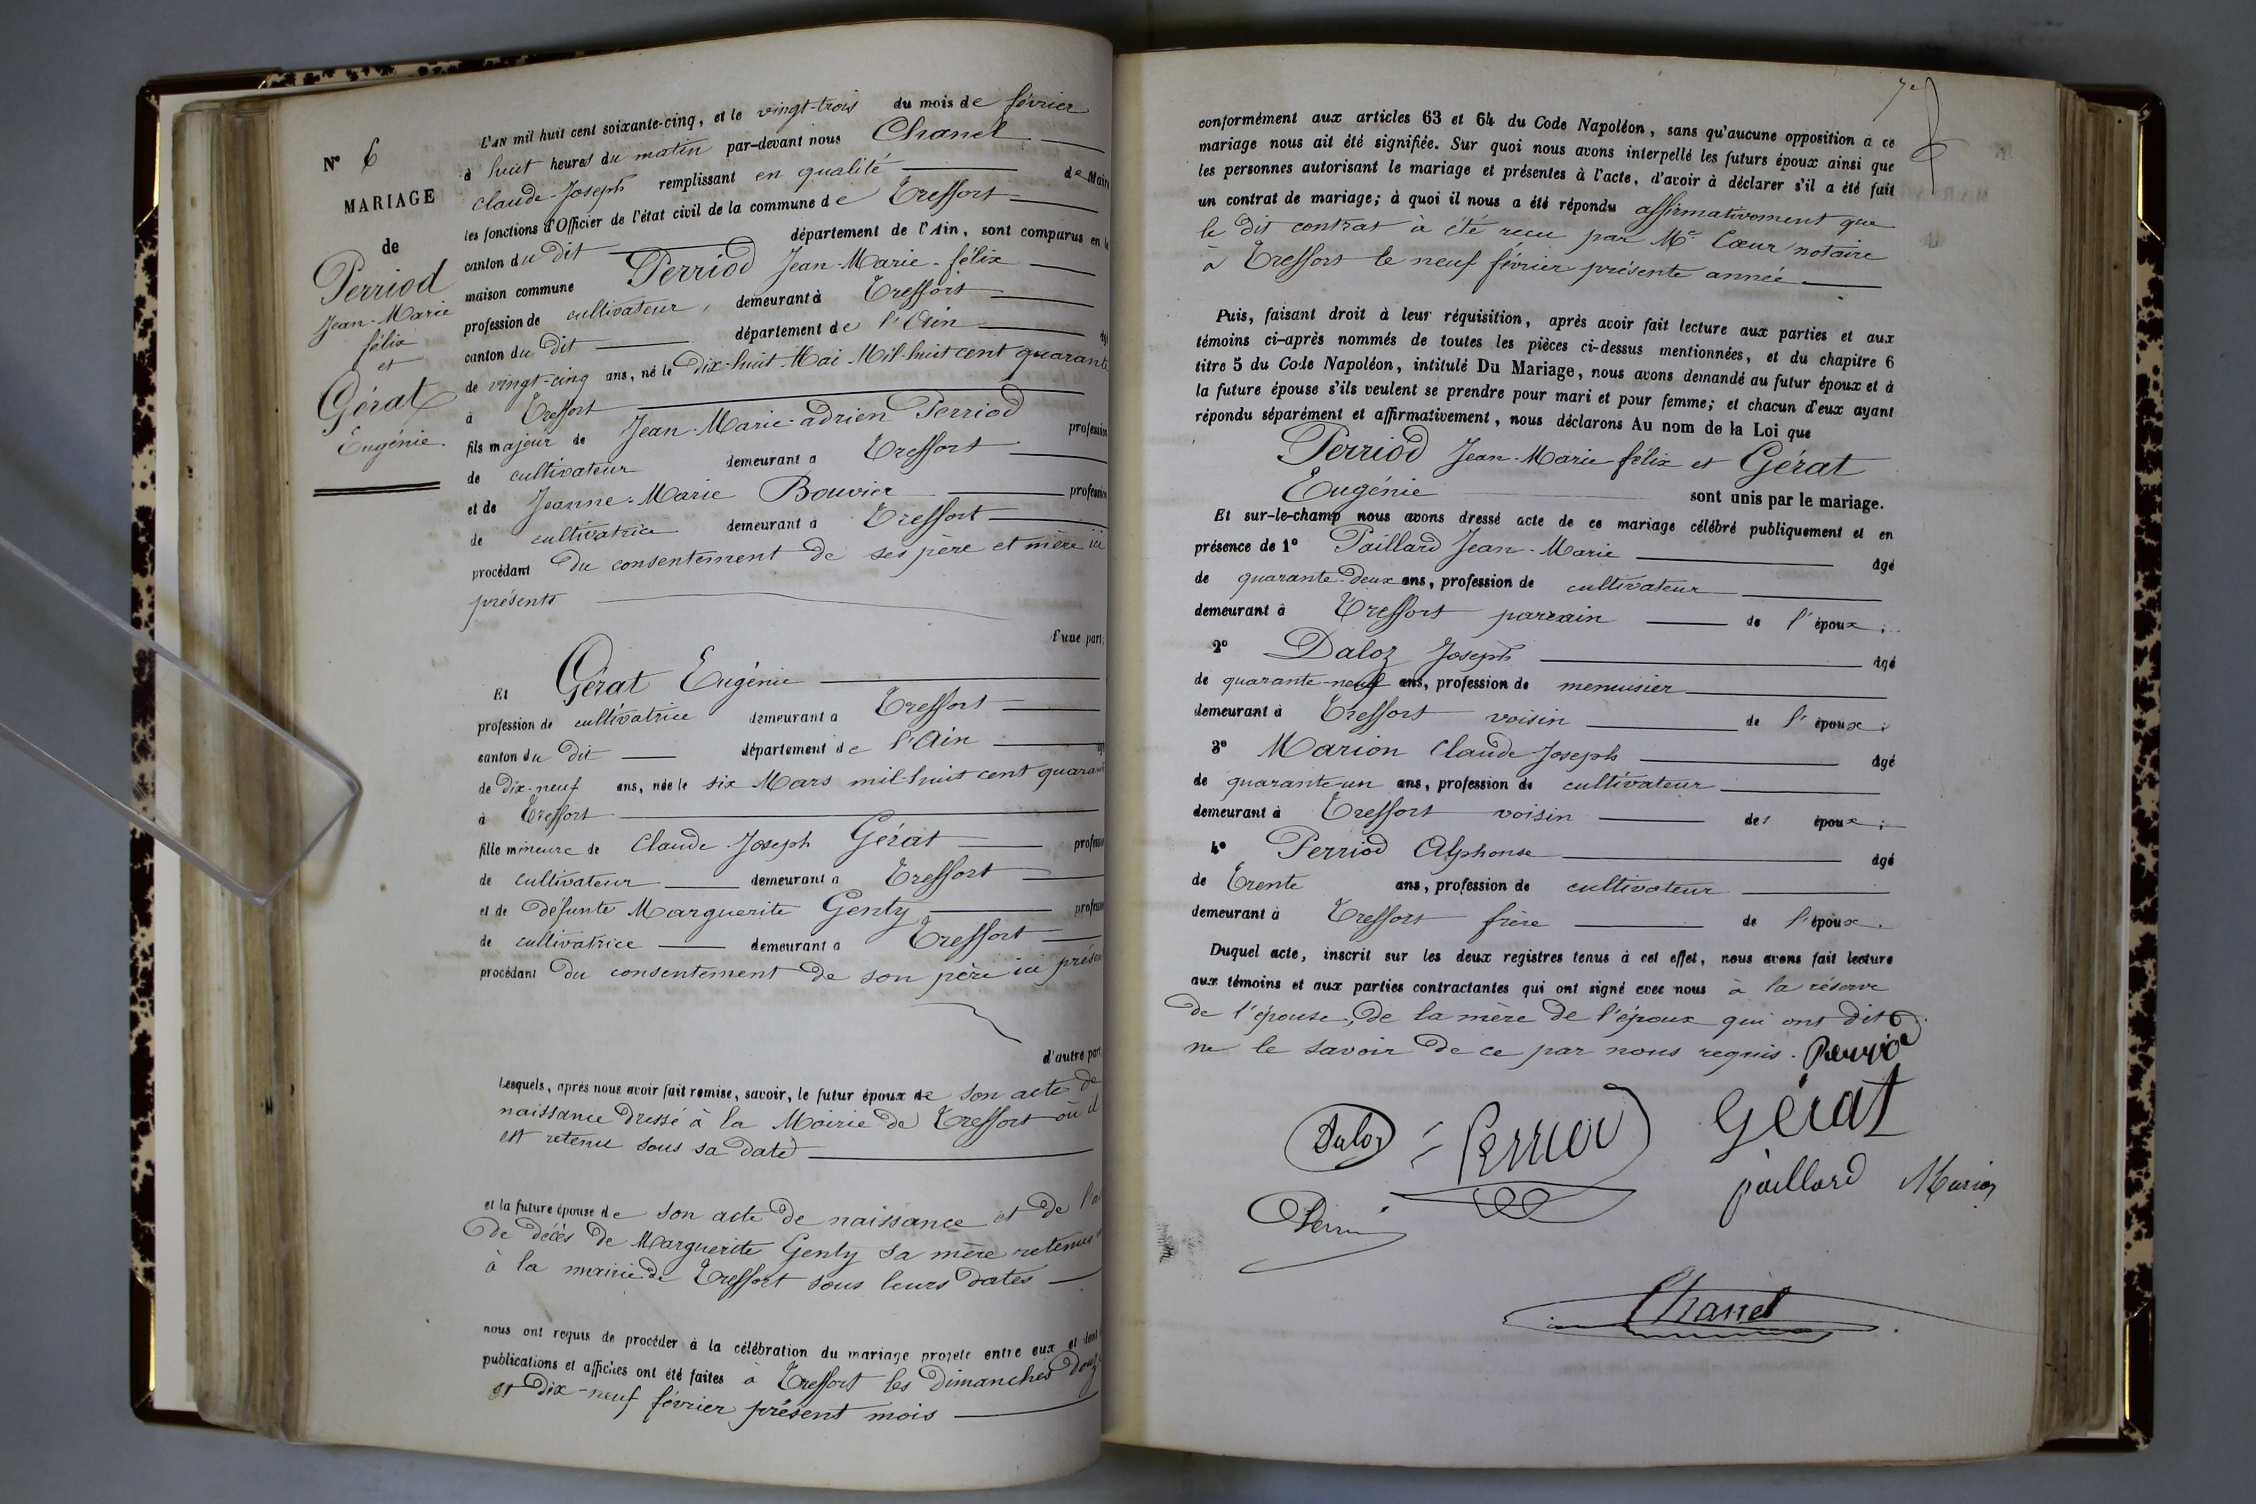 N° 6
MARIAGE
de
Perriod
Jean-Marie
félix
et
Gérat
Eugénie.
L'AN mil huit cent soixante-cinq, et le vingt-trois du mois de février
à huit heures du matin par-devant nous Chanel
Claude-Joseph remplissant en qualité de Maire
les fonctions d'Officier de l'état civil de la commune de Treffort
canton du dit département de l'Ain, sont comparus en la
maison commune Perriod Jean-Marie-félix
profession de cultivateur, demeurant à Treffort
canton du dit département de l'Ain âgé
de vingt-cinq ans, né le Dix-huit Mai Mil-huit cent quarante
à Treffort
fils majeur de Jean-Marie-adrien Perriod profession
de cultivateur demeurant a Treffort
et de Jeanne-Marie Bouvier profession
de cultivatrice demeurant à Treffort
procédant du consentement de ses père et mère ici
présents
d'une part;
Et Gérat Eugénie
profession de cultivatrice demeurant a Treffort
canton du dit département de l'Ain
de dix-neuf ans, née le six Mars mil-huit cent quaran
à Treffort
fille mineure de Claude-Joseph Gérat profession
de cultivateur demeurant a Treffort
et de défunte Marguerite Genty profession
de cultivatrice demeurant a Treffort
procédant du consentement de son père ici présen
d'autre part
Lesquels, après nous avoir fait remise, savoir, le futur époux de son acte de
naissance dressé à la Mairie de Treffort où il
est retenu sous sa date
et la future épouse de son acte de naissance et de l'a
de décès de Marguerite Genty sa mère retenus
à la mairie de Treffort sous leurs dates
nous ont requis de procéder à la célébration du mariage projeté entre eux et dont
publications et affiches ont été faites à Treffort les dimanches douze
et dix-neuf février présent mois
conformément aux articles 63 et 64 du Code Napoléon, sans qu'aucune opposition à ce
mariage nous ait été signifiée. Sur quoi nous avons interpellé les futurs époux ainsi que
les personnes autorisant le mariage et présentes à l'acte, d'avoir à déclarer s'il a été fait
un contrat de mariage; à quoi il nous a été répondu affirmativement que
le dit contrat à été recu par Me Cœur notaire
à Treffort le neuf février présente année
Puis, faisant droit à leur réquisition, après avoir fait lecture aux parties et aux
témoins ci-après nommés de toutes les pièces ci-dessus mentionnées, et du chapitre 6
titre 5 du Code Napoléon, intitulé Du Mariage, nous avons demandé au futur époux et à
la future épouse s'ils veulent se prendre pour mari et pour femme; et chacun d'eux ayant
répondu séparément et affirmativement, nous déclarons Au nom de la Loi que
Perriod Jean-Marie félix et Gérat
Eugénie sont unis par le mariage.
Et sur-le-champ nous avons dressé acte de ce mariage célébré publiquement et en
présence de 1° Paillard Jean-Marie âgé
de quarante-deux ans, profession de cultivateur
demeurant à Treffort parrain de l'époux;
2° Daloz Joseph âgé
de quarante-neuf ans, profession de menuisier
demeurant à Treffort voisin de l'époux;
3° Marion Claude Joseph âgé
de quarante-un ans, profession de cultivateur
demeurant à Treffort voisin des époux;
4° Perriod Alphonse âgé
de Trente ans, profession de cultivateur
demeurant à Treffort frère de l'époux.
Duquel acte, inscrit sur les deux registres tenus à cet effet, nous avons fait lecture
aux témoins et aux parties contractantes qui ont signé avec nous à la réserve
de l'épouse, de la mère de l'époux qui ont dit
ne le savoir de ce par nous requis. Perriod
Daloz Perriod Gérat
paillard Marion
Chanel